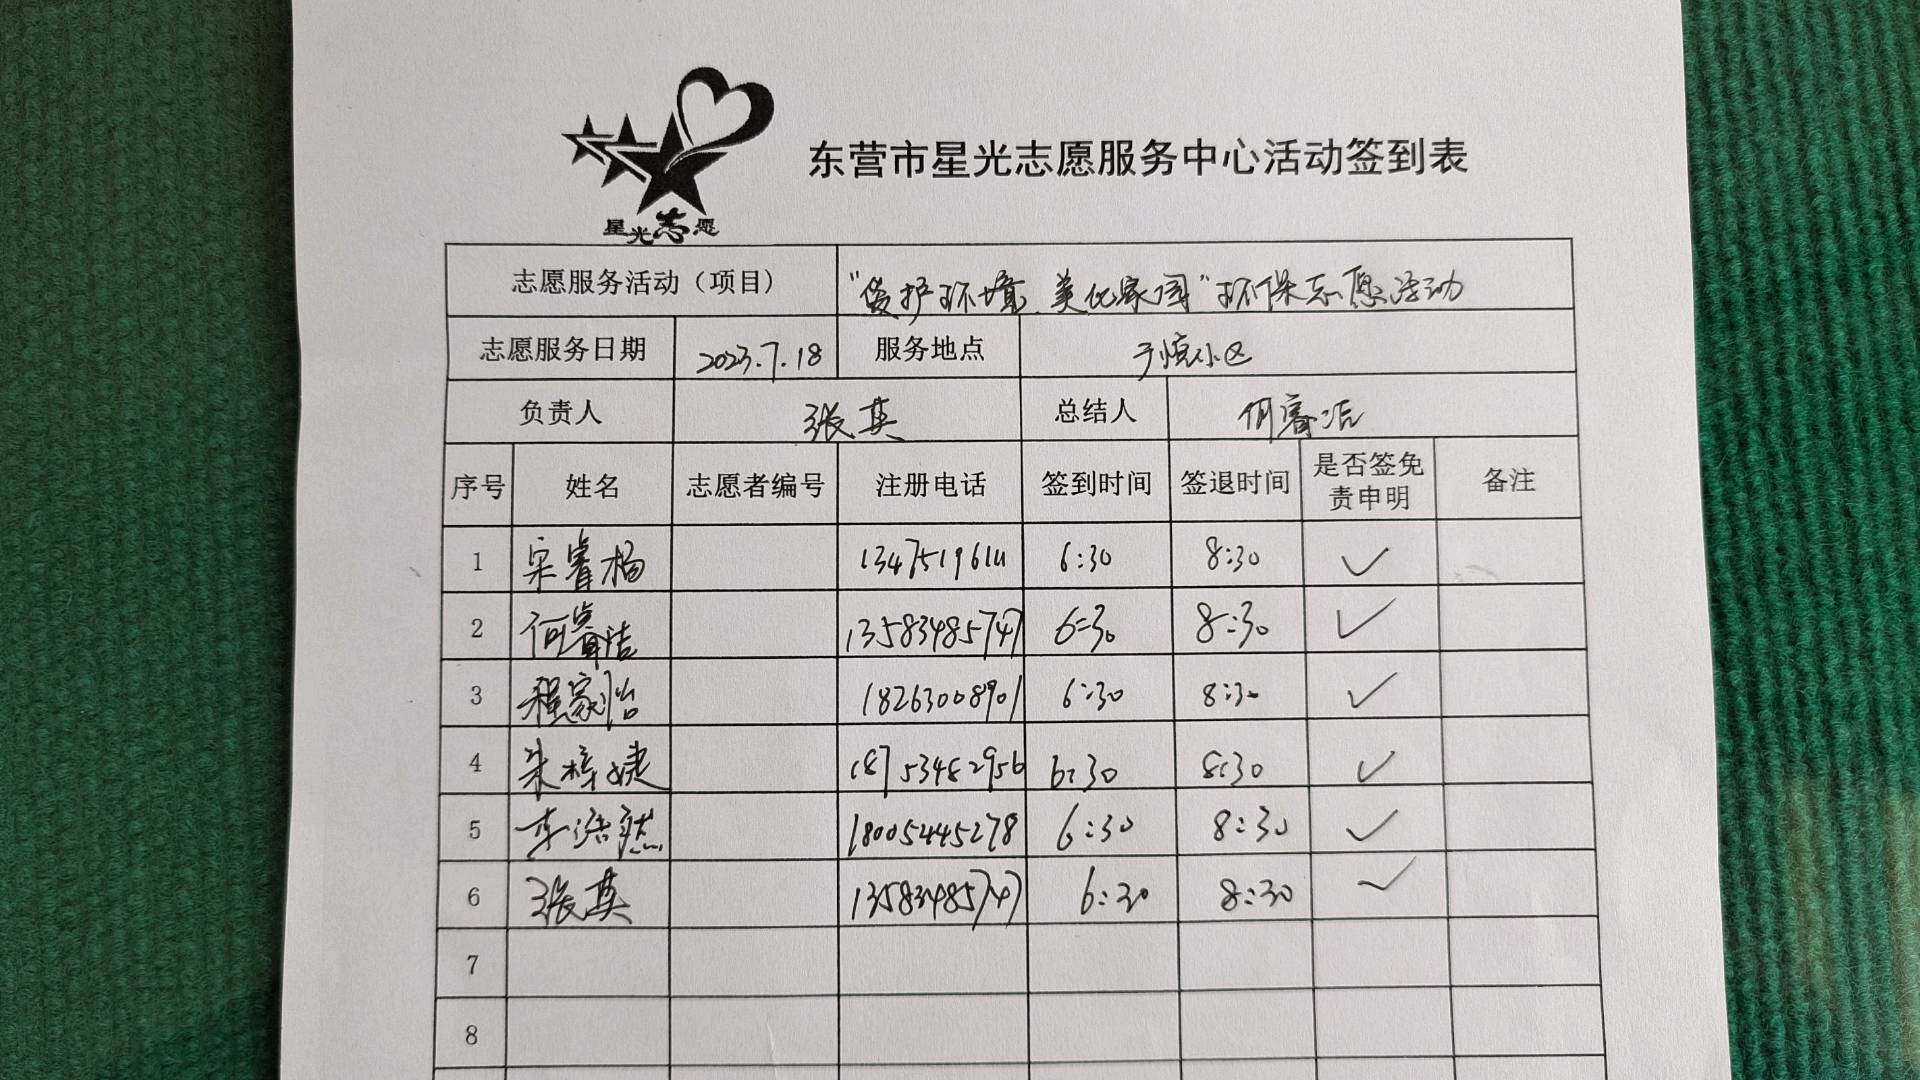 星光志愿
东营市星光志愿服务中心活动签到表
志愿服务活动（项目） “爱护环境、美化家园”环保志愿活动
志愿服务日期 2023.7.18 服务地点 小区
负责人 张英 总结人 何睿洁
序号 姓名 志愿者编号 注册电话 签到时间 签退时间 是否签免责申明 备注
1 宋睿杨 6:30 8:30 ✓
2 何睿洁 13583485747 6:30 8:30 ✓
3 程家怡 18263008901 6:30 8:30 ✓
4 朱梓婕 18753482956 6:30 8:30 ✓
5 李浩然 18005445278 6:30 8:30 ✓
6 张英 13583485747 6:30 8:30 ✓
7
8